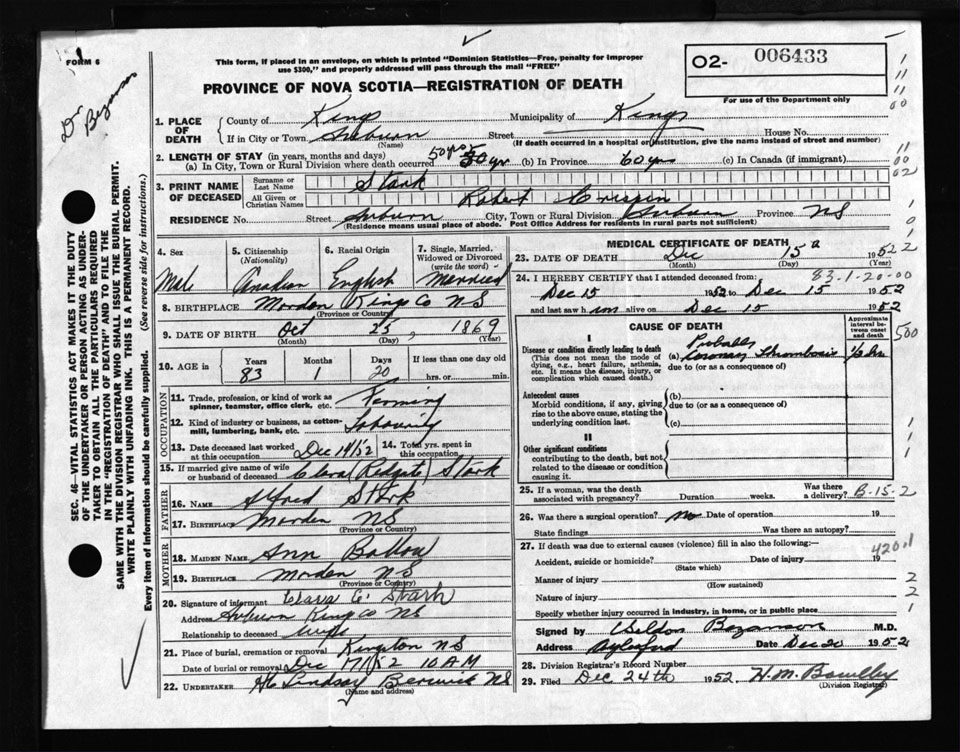 FORM 6
Dr Bezanson
This form, if placed in an envelope, on which is printed "Dominion Statistics—Free, penalty for improper
use $300," and properly addressed will pass through the mail "FREE"
PROVINCE OF NOVA SCOTIA—REGISTRATION OF DEATH
O2- 006433
For use of the Department only
1. PLACE OF DEATH
County of Kings Municipality of Kings
If in City or Town Auburn Street House No.
(Name) (If death occurred in a hospital or institution, give the name instead of street and number)
2. LENGTH OF STAY (in years, months and days)
(a) In City, Town or Rural Division where death occurred 50 yrs (b) In Province 60 yrs (c) In Canada (if immigrant)
3. PRINT NAME OF DECEASED
Surname or Last Name Stark
All Given or Christian Names Robert Crispin
RESIDENCE No. Street Auburn City, Town or Rural Division Auburn Province NS
(Residence means usual place of abode. Post Office Address for residents in rural parts not sufficient)
SEC. 46—VITAL STATISTICS ACT MAKES IT THE DUTY
OF THE UNDERTAKER OR PERSON ACTING AS UNDER-
TAKER TO OBTAIN ALL THE PARTICULARS REQUIRED
IN THE "REGISTRATION OF DEATH" AND TO FILE THE
SAME WITH THE DIVISION REGISTRAR WHO SHALL ISSUE THE BURIAL PERMIT.
WRITE PLAINLY WITH UNFADING INK. THIS IS A PERMANENT RECORD.
Every item of Information should be carefully supplied. (See reverse side for instructions.)
4. Sex Male
5. Citizenship (Nationality) Canadian
6. Racial Origin English
7. Single, Married, Widowed or Divorced (write the word) Married
8. BIRTHPLACE Morden Kings Co NS
(Province or Country)
9. DATE OF BIRTH Oct 25, 1869
(Month) (Day) (Year)
10. AGE in Years 83 Months 1 Days 20 If less than one day old hrs. or min.
OCCUPATION
11. Trade, profession, or kind of work as spinner, teamster, office clerk, etc. Farming
12. Kind of industry or business, as cotton-mill, lumbering, bank, etc. Labouring
13. Date deceased last worked at this occupation Dec 14/52 14. Total yrs. spent in this occupation
15. If married give name of wife or husband of deceased Clara (Redgate) Stark
FATHER
16. NAME Alfred Stark
17. BIRTHPLACE Morden NS
(Province or Country)
MOTHER
18. MAIDEN NAME Ann Ballou
19. BIRTHPLACE Morden NS
(Province or Country)
20. Signature of informant Clara E. Stark
Address Auburn Kings Co NS
Relationship to deceased wife
21. Place of burial, cremation or removal Kingston NS
Date of burial or removal Dec 17/52 10 AM
22. UNDERTAKER Lindsay Berwick NS
(Name and address)
MEDICAL CERTIFICATE OF DEATH
23. DATE OF DEATH Dec 15th 1952
(Month) (Day) (Year)
83-1-20-00
24. I HEREBY CERTIFY that I attended deceased from:
Dec 15 1952 to Dec 15 1952
and last saw him alive on Dec 15 1952
CAUSE OF DEATH
Approximate interval between onset and death
I
Disease or condition directly leading to death
(This does not mean the mode of dying, e.g., heart failure, asthenia, etc. It means the disease, injury, or complication which caused death.)
(a) Probably Coronary Thrombosis ½ hr
due to (or as a consequence of)
Antecedent causes
Morbid conditions, if any, giving rise to the above cause, stating the underlying condition last.
(b)
due to (or as a consequence of)
(c)
II
Other significant conditions
contributing to the death, but not related to the disease or condition causing it.
25. If a woman, was the death associated with pregnancy? Duration weeks. Was there a delivery? B-15-2
26. Was there a surgical operation? no Date of operation 19
State findings Was there an autopsy?
27. If death was due to external causes (violence) fill in also the following:— 420.1
Accident, suicide or homicide? Date of injury 19
(State which)
Manner of injury
(How sustained)
Nature of injury
Specify whether injury occurred in industry, in home, or in public place
Signed by Seldon Bezanson M.D.
Address Aylesford Date Dec 20 1952
28. Division Registrar's Record Number
29. Filed Dec 24th 1952 H.M. Bowlby
(Division Registrar)